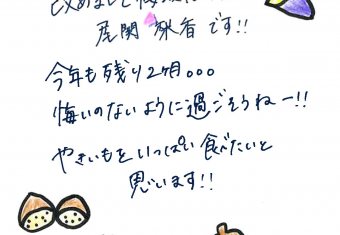 改めまして
尾関 梨香です!!
今年も残り2ヶ月。。。
悔いのないように過ごそうねー!!
やきいもをいっぱい食べたいと
思います!!